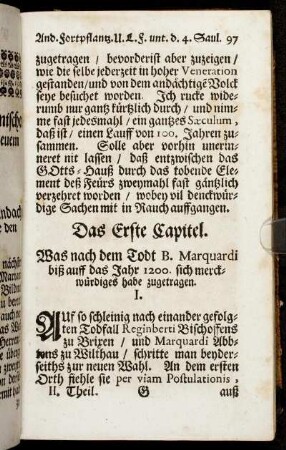 And. Fortpflantz. U. L. F. unt. d. 4. Saul. 97
zugetragen / bevorderist aber zuzeigen /
wie die selbe jederzeit in hoher Veneration
gestanden/und von dem andächtigē Volck
seye besuchet worden. Ich rucke wide-
rumb nur gantz kürtzlich durch / und nim-
me fast jedesmahl / ein gantzes Sæculum,
daß ist / einen Lauff von 100. Jahren zu-
sammen. Solle aber vorhin unerin-
neret nit lassen / daß entzwischen das
GOtts-Hauß durch das tobende Ele-
ment deß Feürs zweymahl fast gäntzlich
verzehret worden / wobey vil denckwür-
dige Sachen mit in Rauch auffgangen.
Das Erste Capitel.
Was nach dem Todt B. Marquardi
biß auff das Jahr 1200. sich merck-
würdiges habe zugetragen.
I.
AUf so schleinig nach einander gefolg-
ten Todfall Reginberti Bischoffens
zu Brixen / und Marquardi Abb-
tens zu Wilthau / schritte man beyder-
seiths zur neuen Wahl. An dem ersten
Orth fiehle sie per viam Postulationis,
II. Theil. G auß